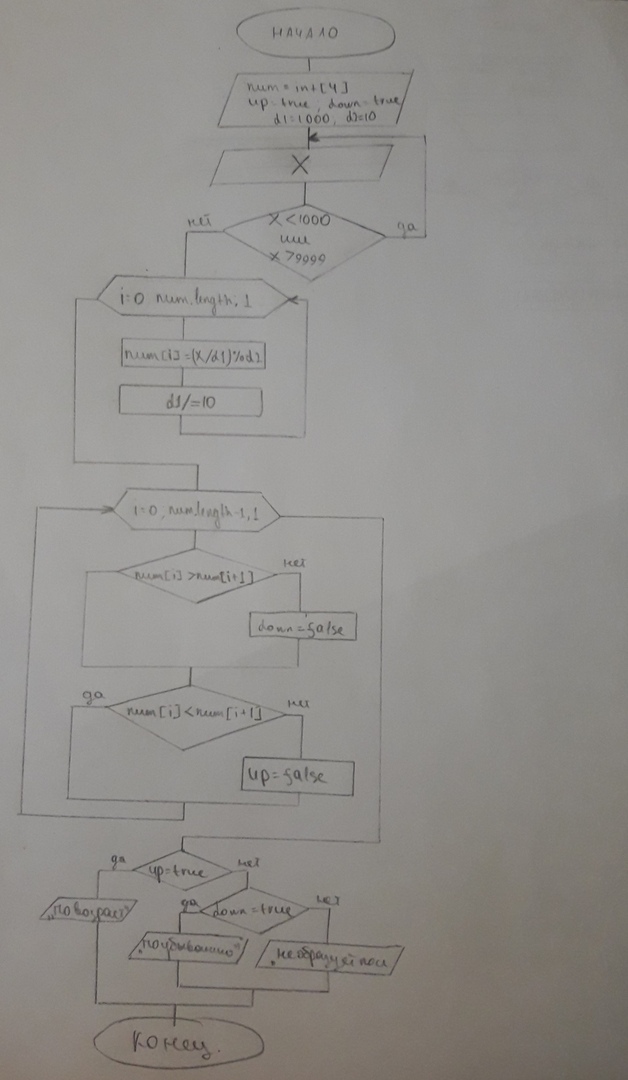 НАЧАЛО
num = int[4]
up=true, down=true
d1=1000, d2=10
X
X<1000
или
X>9999
нет
да
i=0 num.length, 1
num[i]=(X/d1)%d2
d1/=10
i=0, num.length-1, 1
num[i]>num[i+1]
нет
down=false
да
num[i]<num[i+1]
нет
up=false
да
up=true
нет
„по возраст"
да
down=true
нет
„по убыванию"
„не образует посл
конец